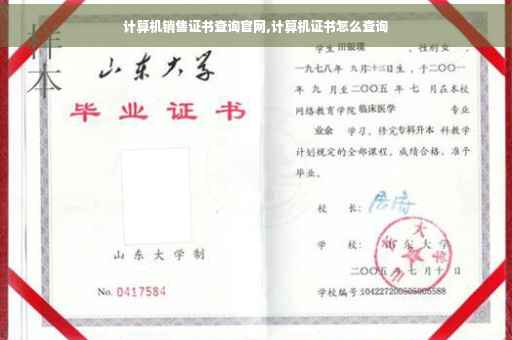 计算机销售证书查询官网,计算机证书怎么查询
样本
山东大学
毕业证书
山东大学制
No. 0417584
学生 田银瑞 ，性别女 ，
一九七八年 九月十三日生，于二〇〇一
年 九 月至二〇〇五 年 七 月在本校
网络教育学院 临床医学 专业
业余 学习，修完专科升本 科教学
计划规定的全部课程，成绩合格，准予
毕业。
校 长：
学 校： 山东大学
二〇〇五 年 七 月 十 日
学校编号:104227200505005588